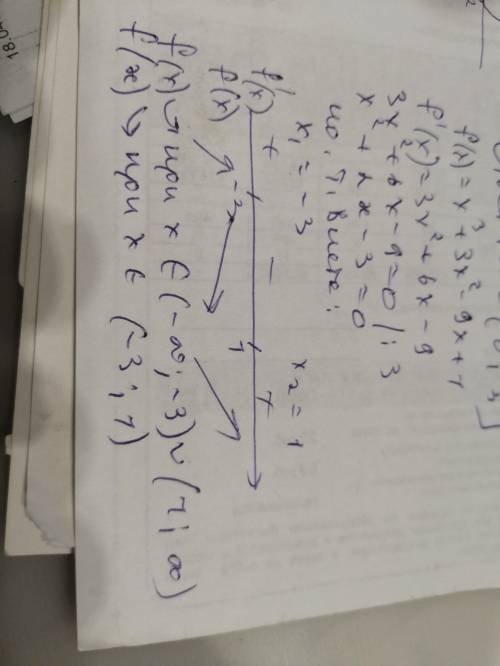 f(x) = x³ + 3x² - 9x + 1
f'(x) = 3x² + 6x - 9
3x² + 6x - 9 = 0 /: 3
x² + 2x - 3 = 0
по т. Виета:
x₁ = -3 x₂ = 1
f'(x) + - +
f(x) -3 1
f(x) ↗ при x ∈ (-∞; -3) ∪ (1; ∞)
f(x) ↘ при x ∈ (-3; 1)
18.0